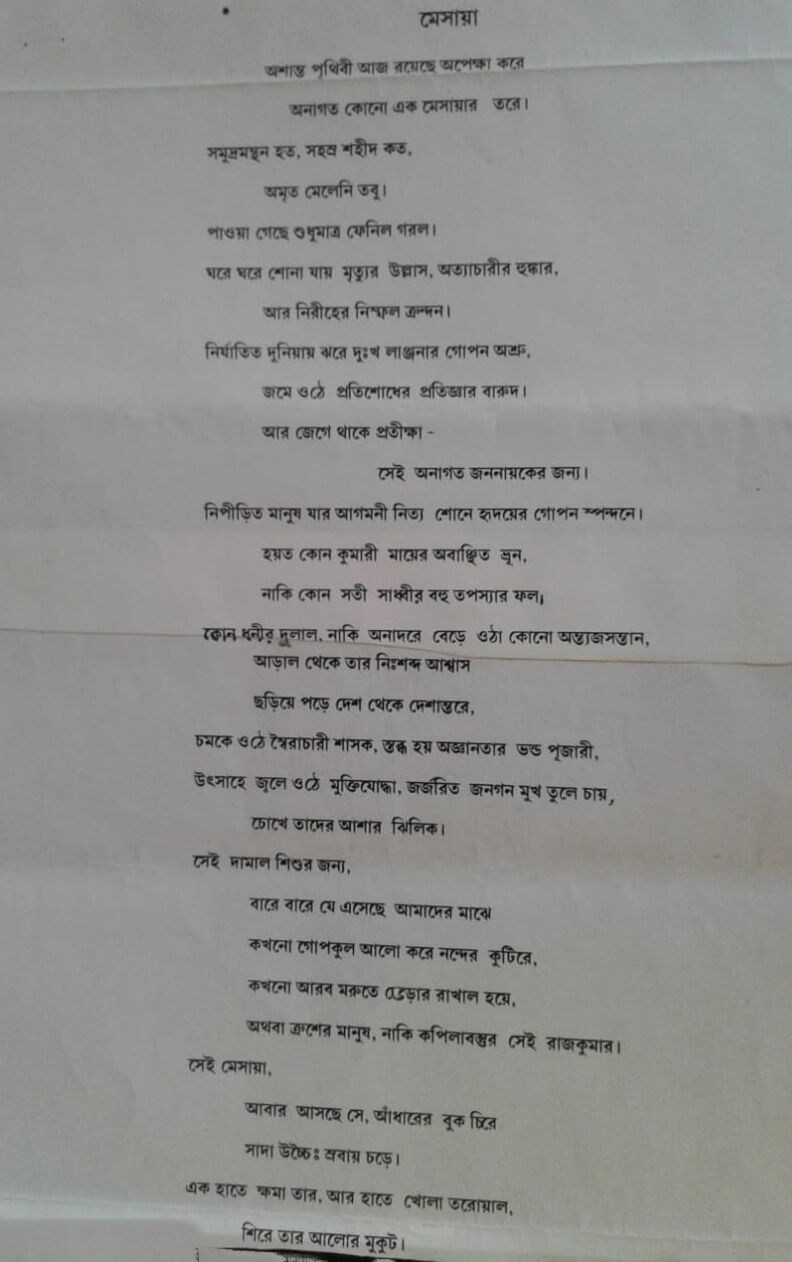 মেসায়া
অশান্ত পৃথিবী আজ রয়েছে অপেক্ষা করে
অনাগত কোনো এক মেসায়ার তরে।
সমূদ্রমন্থন হত, সহস্র শহীদ কত,
অমৃত মেলেনি তবু।
পাওয়া গেছে শুধুমাত্র ফেনিল গরল।
ঘরে ঘরে শোনা যায় মৃত্যুর উল্লাস, অত্যাচারীর হুঙ্কার,
আর নিরীহের নিষ্ফল ক্রন্দন।
নির্যাতিত দুনিয়ায় ঝরে দুঃখ লাঞ্ছনার গোপন অশ্রু,
জমে ওঠে প্রতিশোধের প্রতিজ্ঞার বারুদ।
আর জেগে থাকে প্রতীক্ষা -
সেই অনাগত জননায়কের জন্য।
নিপীড়িত মানুষ যার আগমনী নিত্য শোনে হৃদয়ের গোপন স্পন্দনে।
হয়ত কোন কুমারী মায়ের অবাঞ্ছিত ভ্রূন,
নাকি কোন সতী সাধ্বীর বহু তপস্যার ফল,
কোন ধনীর দুলাল, নাকি অনাদরে বেড়ে ওঠা কোনো অন্ত্যজসন্তান,
আড়াল থেকে তার নিঃশব্দ আশ্বাস
ছড়িয়ে পড়ে দেশ থেকে দেশান্তরে,
চমকে ওঠে স্বৈরাচারী শাসক, স্তব্ধ হয় অজ্ঞানতার ভন্ড পূজারী,
উৎসাহে জ্বলে ওঠে মুক্তিযোদ্ধা, জর্জরিত জনগন মুখ তুলে চায়,
চোখে তাদের আশার ঝিলিক।
সেই দামাল শিশুর জন্য,
বারে বারে যে এসেছে আমাদের মাঝে
কখনো গোপকূল আলো করে নন্দের কুটিরে,
কখনো আরব মরুতে ভেড়ার রাখাল হয়ে,
অথবা ক্রুশের মানুষ, নাকি কপিলাবস্তুর সেই রাজকুমার।
সেই মেসায়া,
আবার আসছে সে, আঁধারের বুক চিরে
সাদা উচ্চৈঃ শ্রবায় চড়ে।
এক হাতে ক্ষমা তার, আর হাতে খোলা তরোয়াল,
শিরে তার আলোর মুকুট।